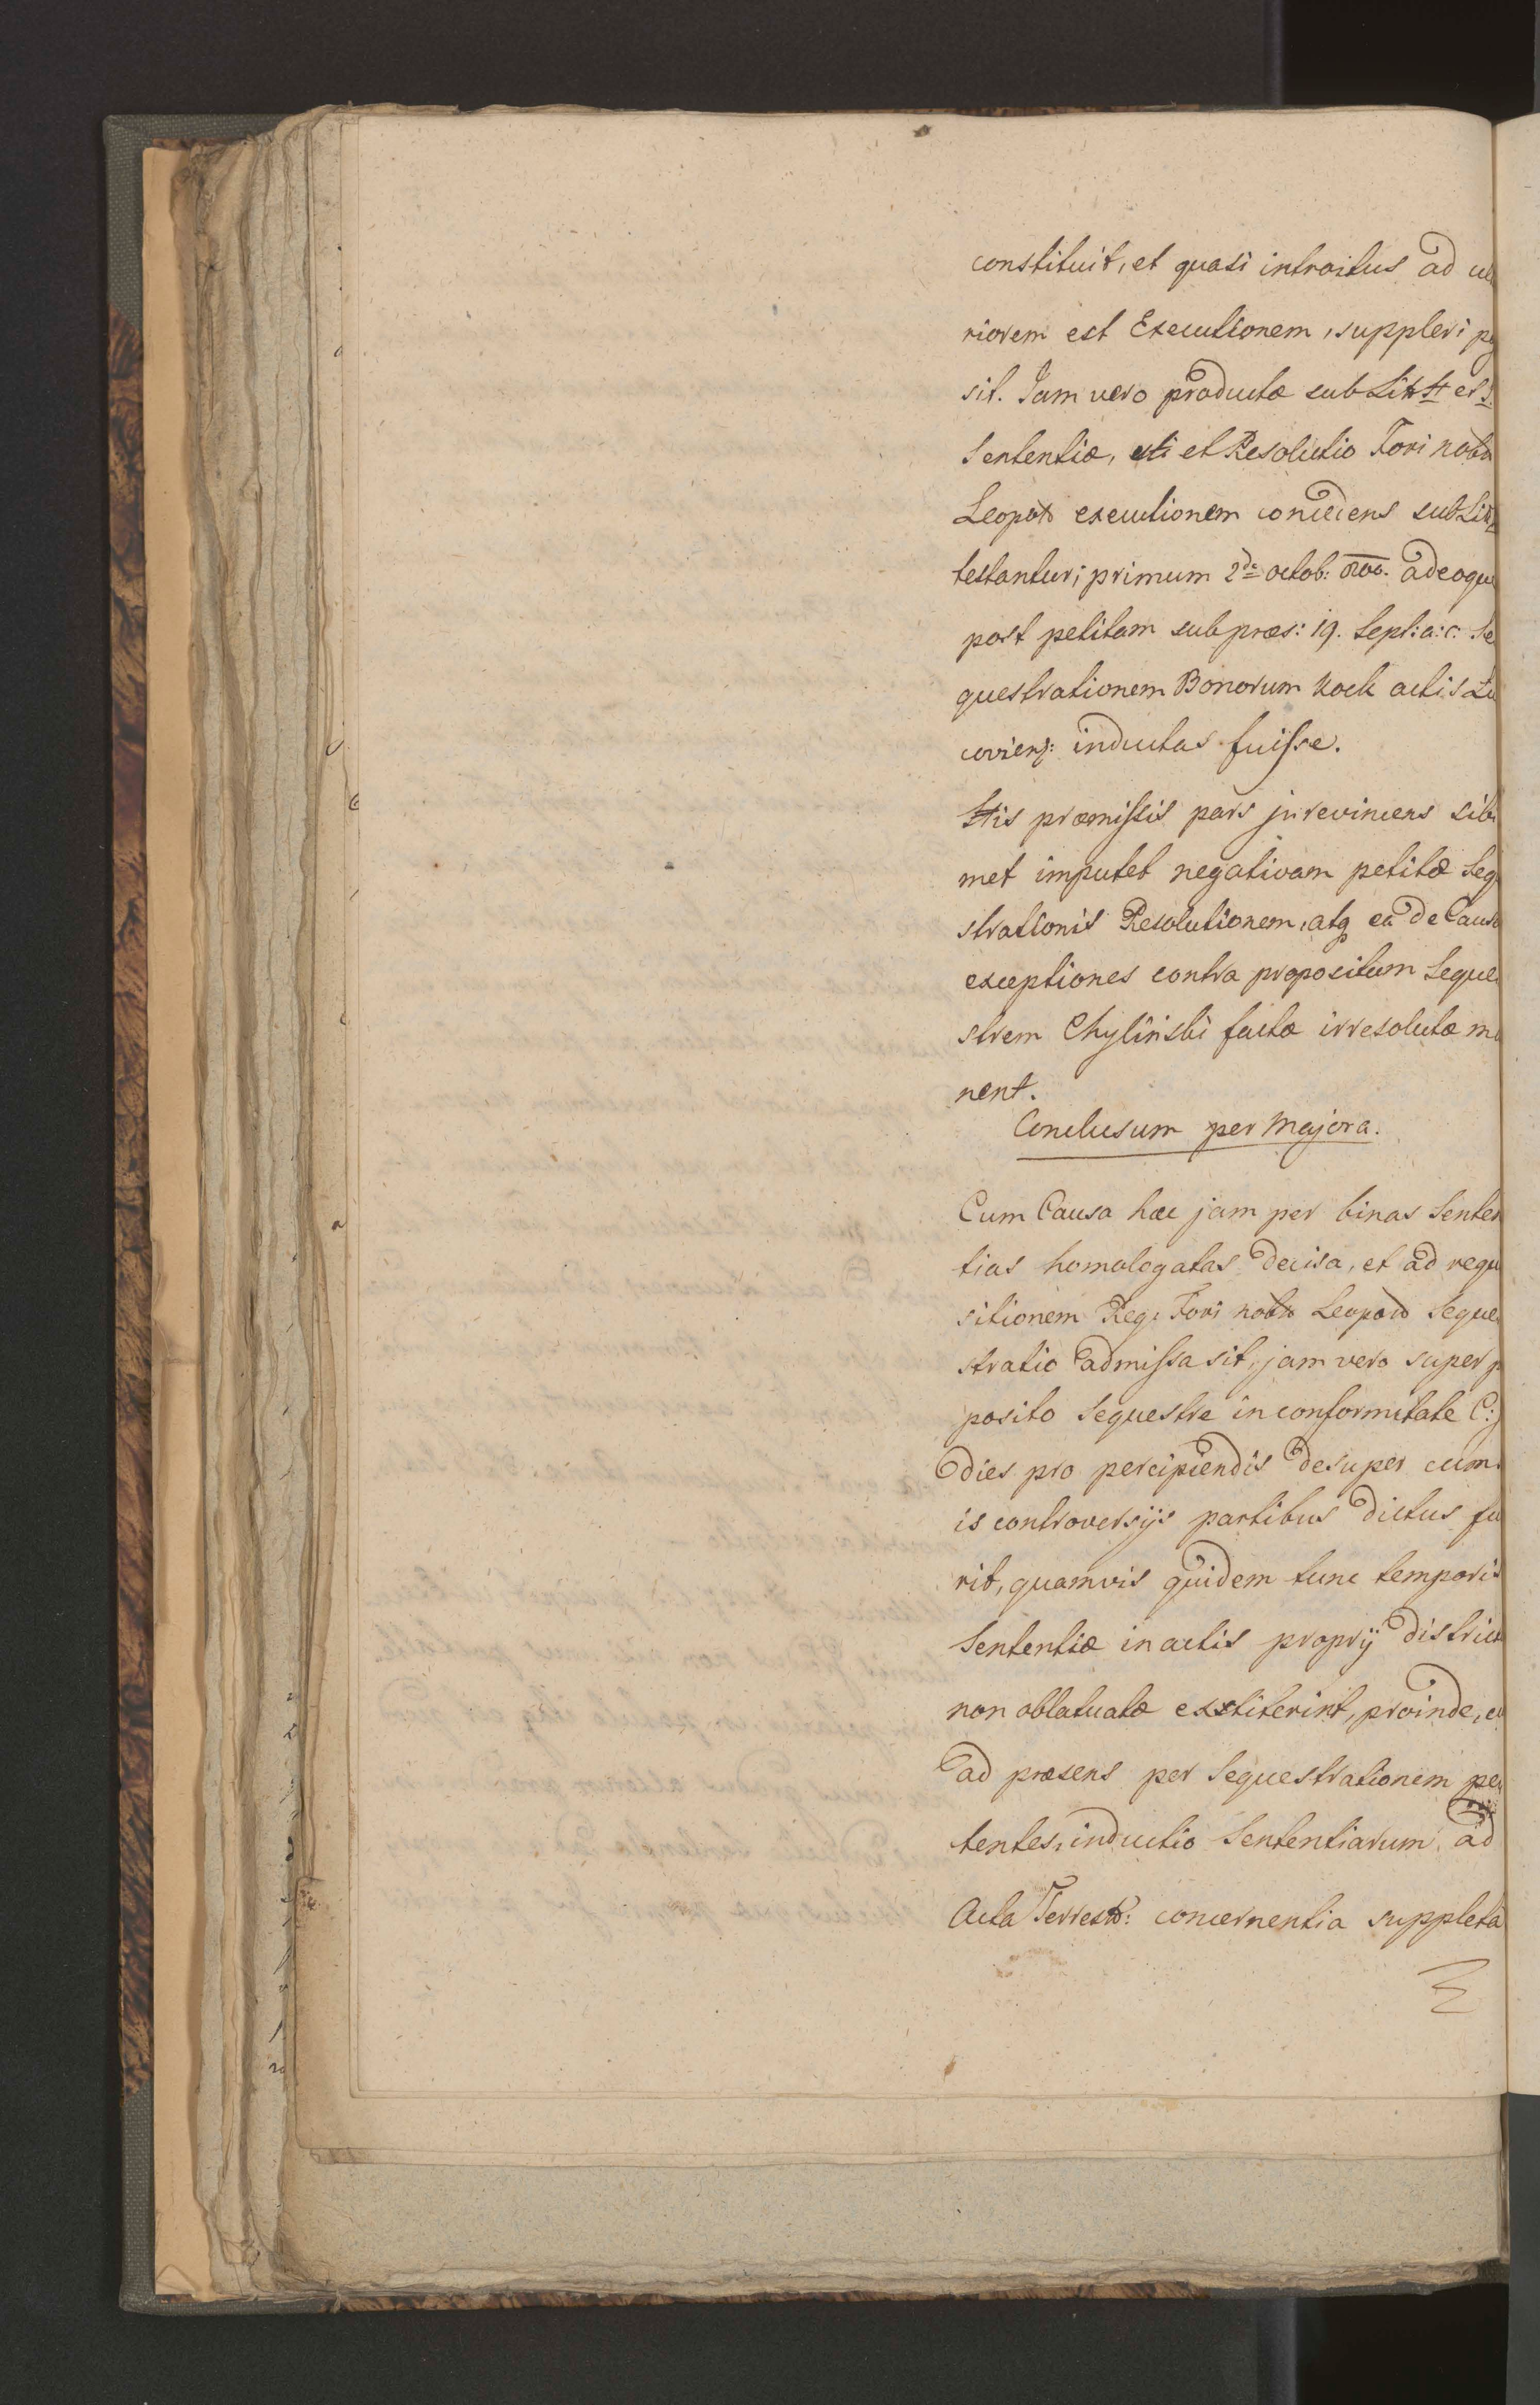 constituit, et quasi introitus ad
riorem est Executionem, suppleri
sit. Jam vero productæ sub Litt H et
Sententiæ, uti et Resolutio Fori
Leopold executionem concedens sub
testantur, primum 2da octob: adeoque
post petitam sub præs: 19. Sept: a: c: Se
questrationem Bonorum Kock actis
coviens: inductas fuisse.
His præmissis pars jurevincens sibi
met imputet negativam petitæ Seq
strationis Resolutionem, atq ea de Causa
exceptiones contra propositum Seque
strem Chyliński factæ irresolutæ ma
nent.
Conclusum per Majora.
Cum Causa hæc jam per binas Senten
tias homologatas decisa, et ad requi
sitionem Reg: Fori Leopold Seque
stratio admissa sit, jam vero super p
posito Sequestre in conformitate C: J
dies pro percipiendis desuper cum
is controversijs partibus dictus fu
rit, quamvis quidem tunc temporis
Sententiæ in actis proprij district
non oblatuatæ exstiterint, proinde,
ad præsens per Sequestrationem pe
tentes, inductio Sententiarum ad
Acta Terrest: concernentia suppleta